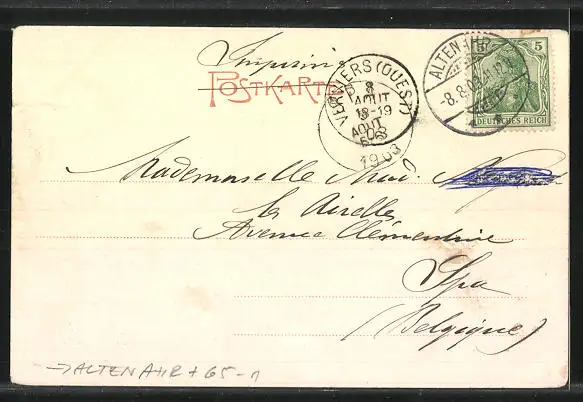 Imprimé
POSTKARTE
VERVIERS (OUEST)
8
AOUT
18-19
AOUT
1903
ALTENAHR
-8.8.03
5
DEUTSCHES REICH
Mademoiselle
les Airelles
Avenue Clémentine
Spa
(Belgique)
→ALTENAHR + G5-1